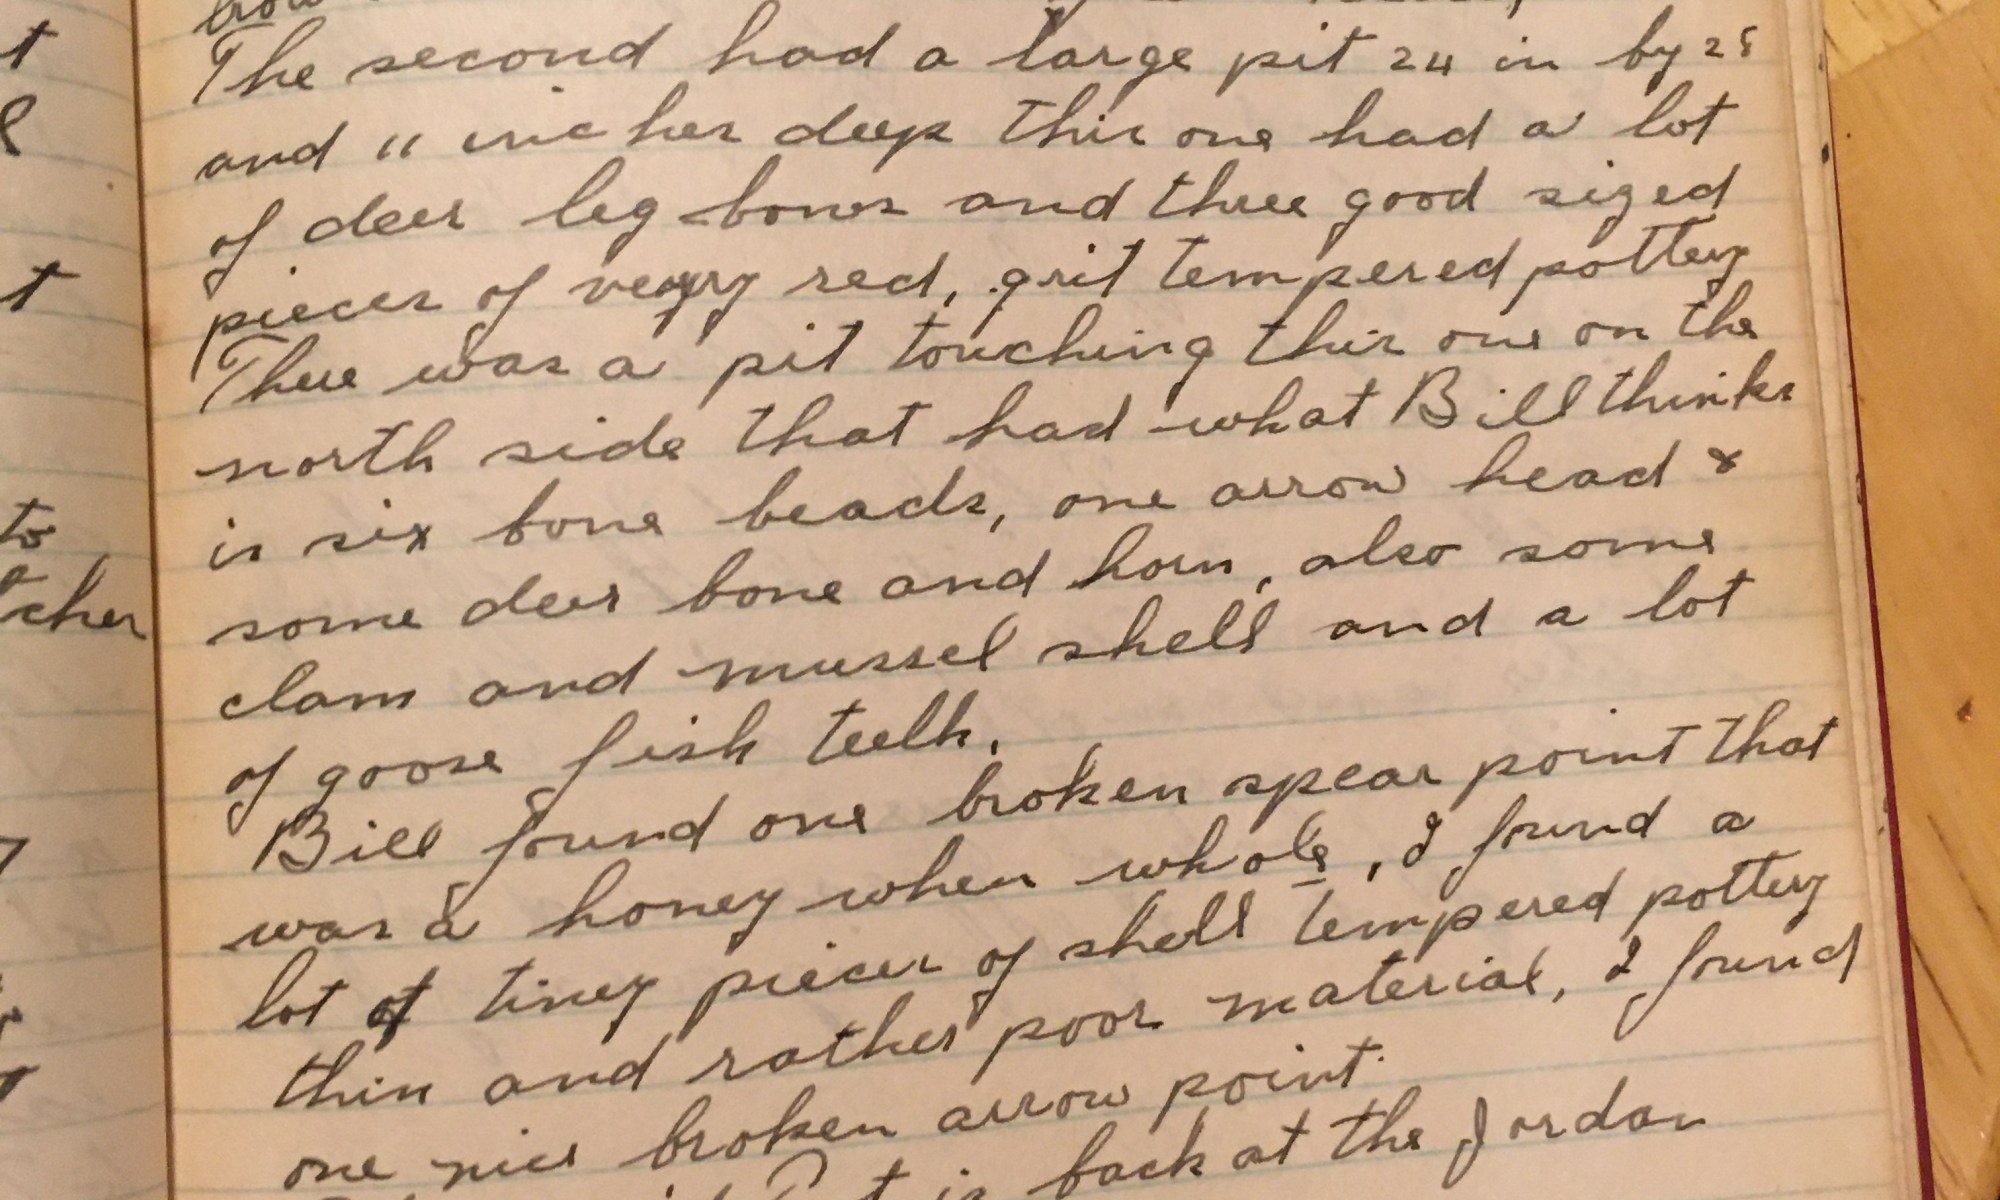 t
The second had a large pit 24 in by 28
and 11 inches deep this one had a lot
of deer leg bones and three good sized
t
pieces of very red, grit tempered pottery
There was a pit touching this one on the
north side that had what Bill thinks
to
is six bone beads, one arrow head &
cher
some deer bone and horn, also some
clam and mussel shell and a lot
of goose fish teeth.
Bill found one broken spear point that
was a honey when whole, I found a
lot of tiney pieces of shell tempered pottery
thin and rather poor material, I found
one nice broken arrow point.
is back at the Jordan